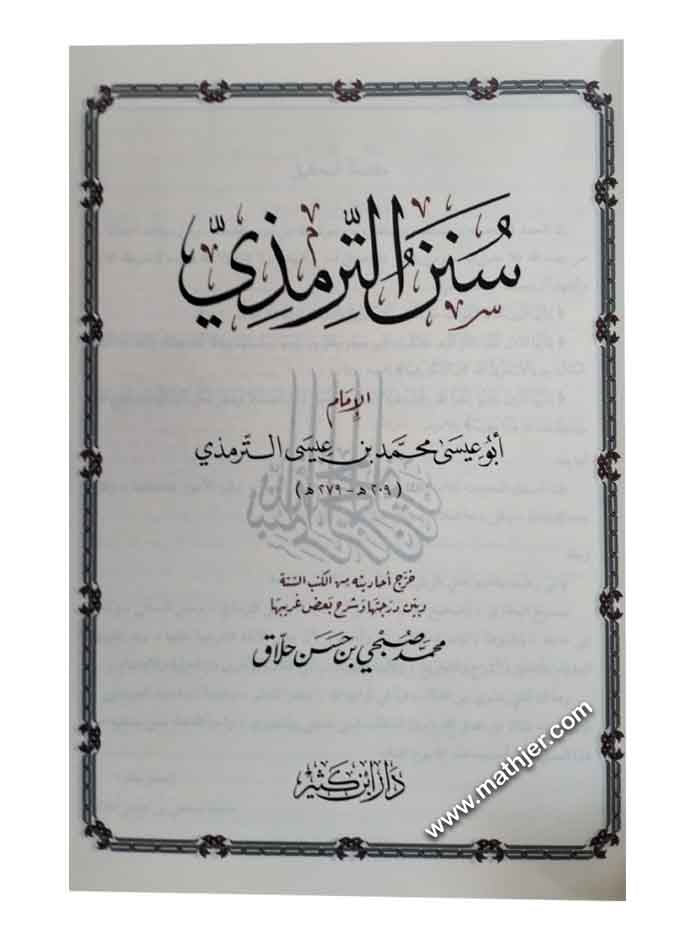 سُنَنُ التِّرمذِيّ
الإِمَام
أبُو عِيسَى محَمَّد بن عِيسَى التِّرمذي
( ٢٠٩ هـ - ٢٧٩ هـ )
خرّج أحاديثه من الكتب الستة
وبيّن درجتها وشرح بعض غريبها
محمّد صُبْحي بن حَسَن حلّاق
دَار ابْن كَثير
www.mathjer.com